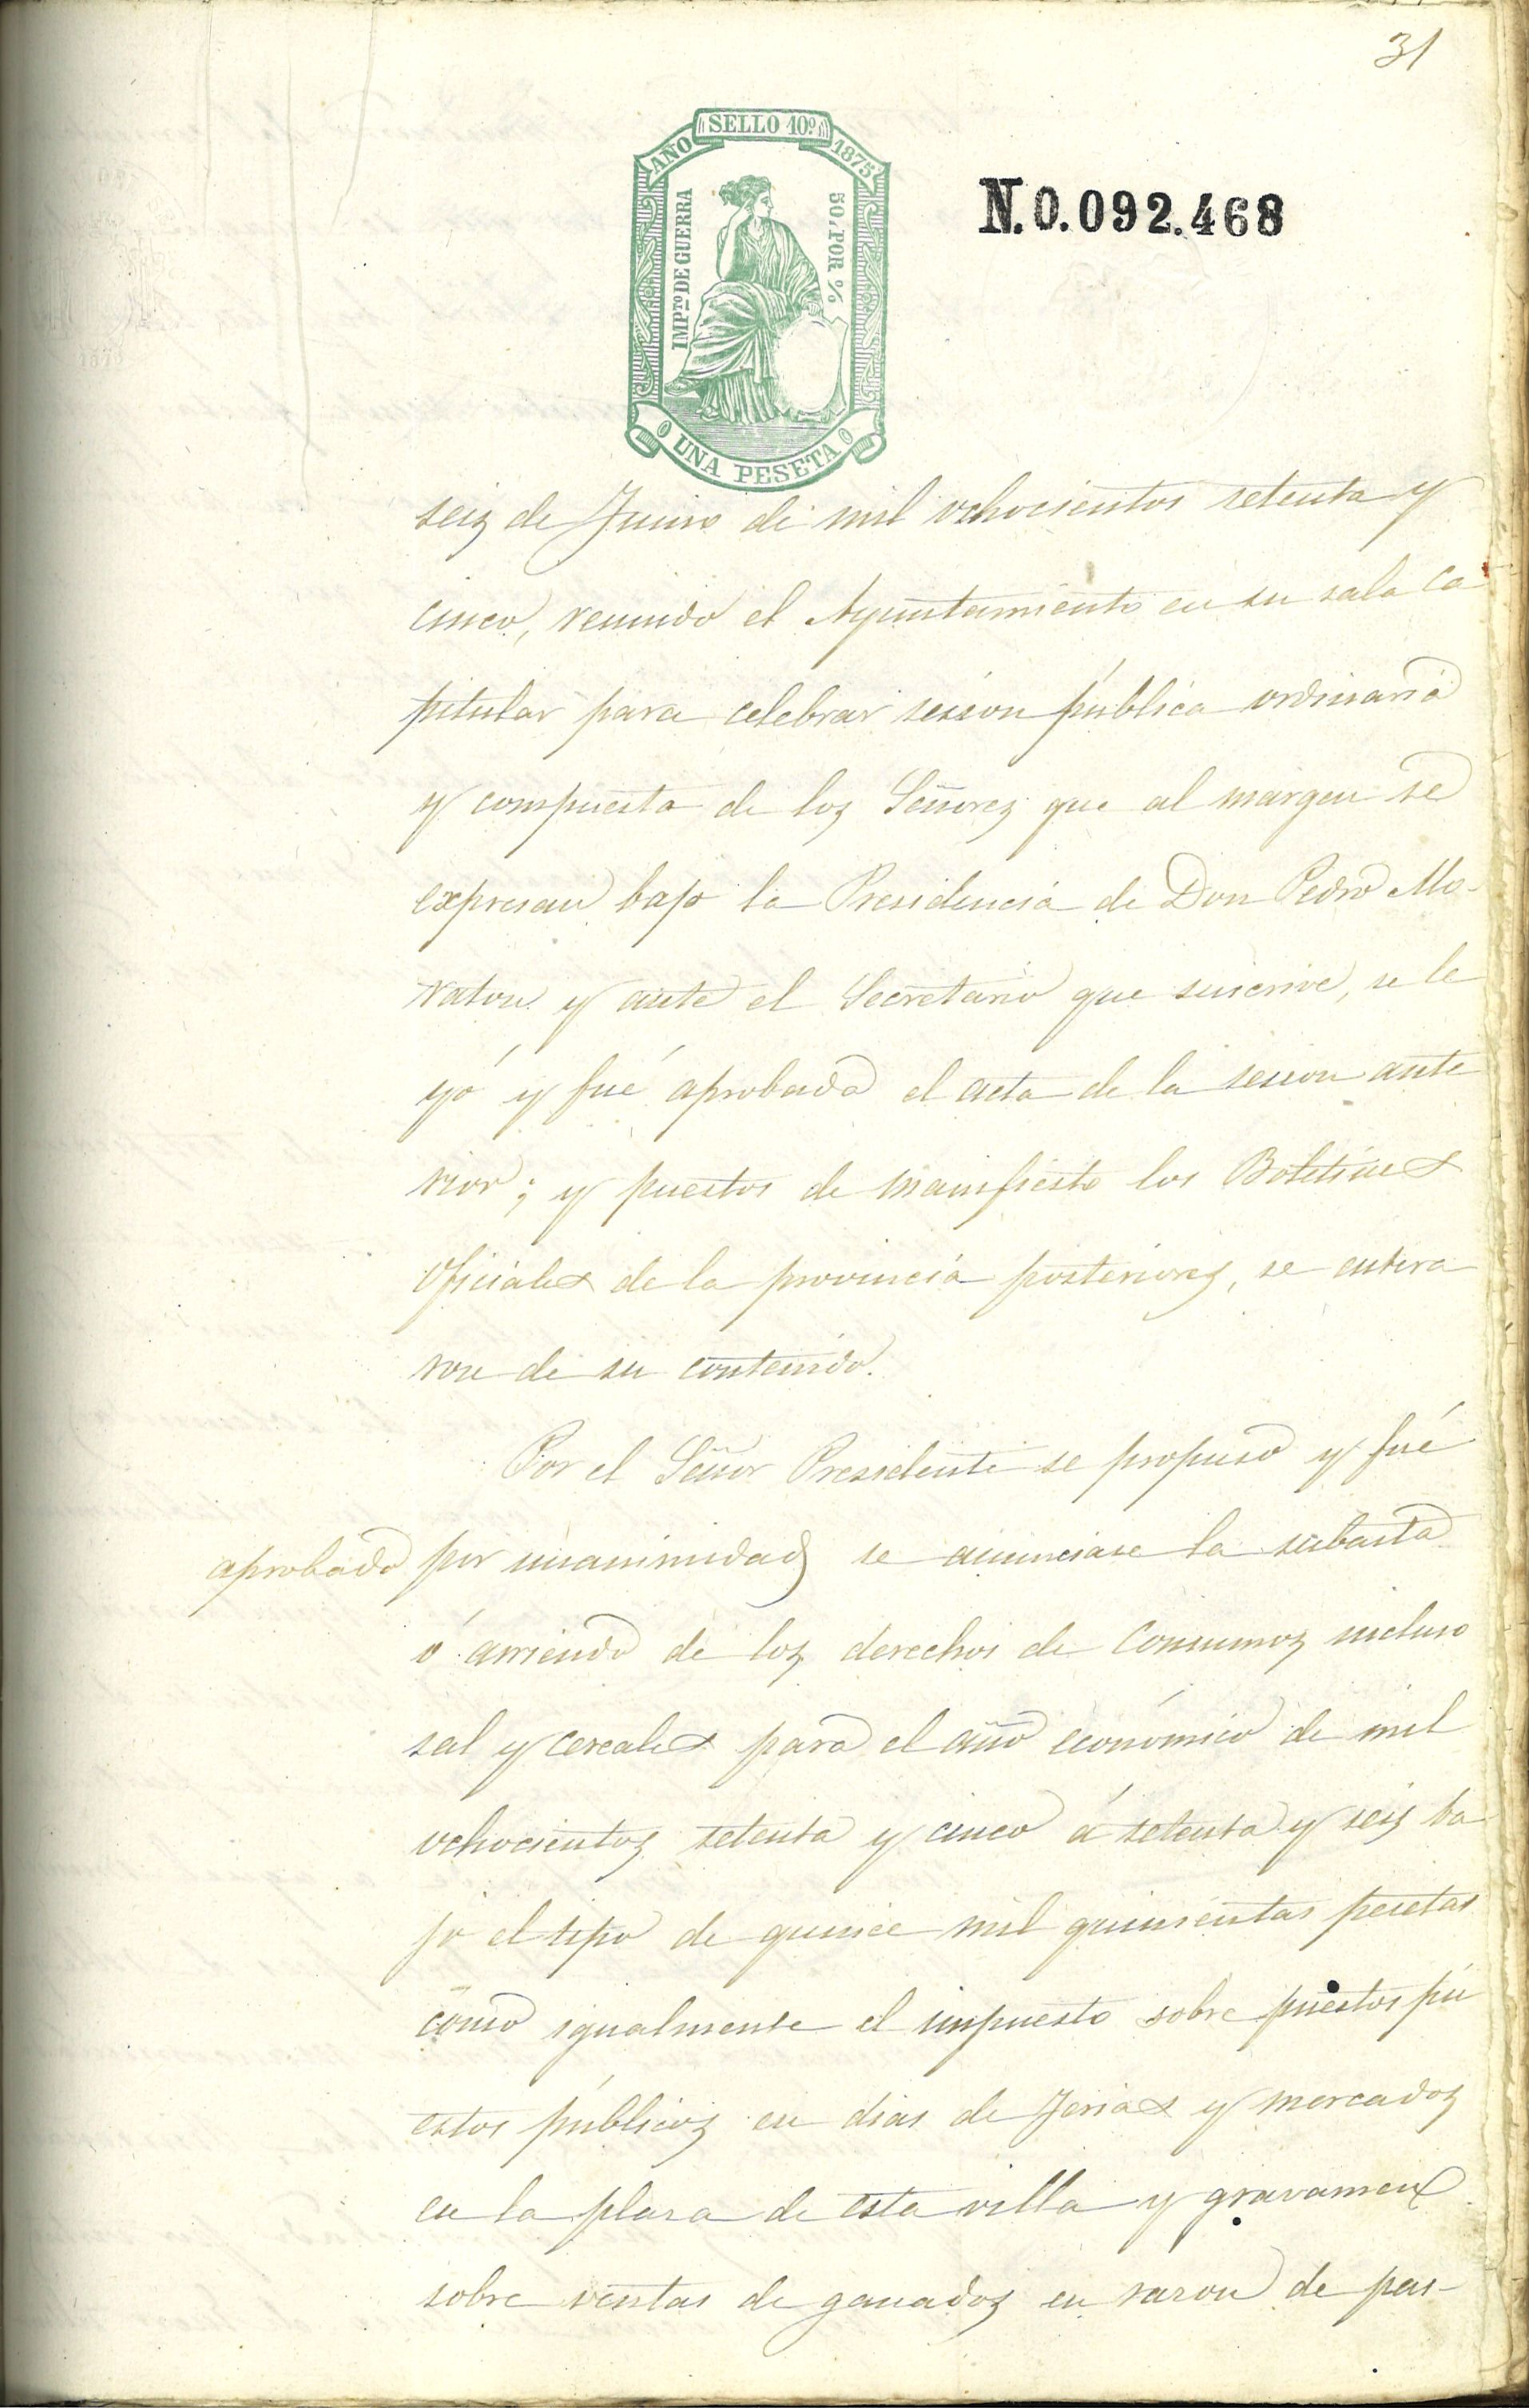 31
SELLO 10º
AÑO 1875
IMPTO DE GUERRA
50, POR %
UNA PESETA
N. 0.092.468
seis de Junio de mil ochocientos setenta y
cinco, reunido el Ayuntamiento en su sala ca
pitular para celebrar sesion pública ordinaria
y compuesta de los Señores que al margen se
expresan bajo la Presidencia de Don Pedro Mo-
raton y ante el Secretario que suscrive, se le
yó y fué aprobada el acta de la sesion ante
rior; y puestos de manifiesto los Boletines
Oficiales de la provincia posteriores, se entera
ron de su contenido.
Por el Señor Presidente se propuso y fué
aprobado por unanimidad se anunciase la subasta
ó arriendo de los derechos de Consumos incluso
sal y cereales para el año económico de mil
ochocientos setenta y cinco á setenta y seis ba
jo el tipo de quince mil quinientas pesetas
como igualmente el impuesto sobre puestos pu
estos públicos en dias de ferias y mercados
en la plasa de esta villa y gravamen
sobre ventas de ganados en rason de pas-